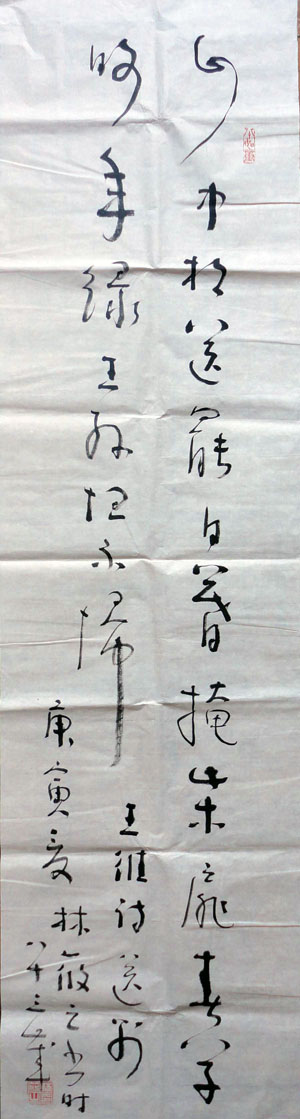 山中相送罷日暮掩柴扉春草
明年緑王孫归不歸
王維詩送别
庚寅夏林筱之书时
八十三歲